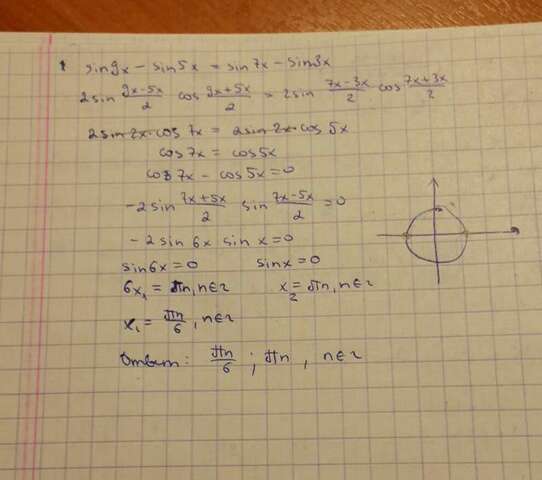 1 sin9x - sin5x = sin7x - sin3x
2sin (9x-5x)/2 cos (9x+5x)/2 = 2sin (7x-3x)/2 cos (7x+3x)/2
2sin2x·cos7x = 2sin2x·cos5x
cos7x = cos5x
cos7x - cos5x=0
-2sin (7x+5x)/2 sin (7x-5x)/2 =0
-2sin6x sin x=0
sin6x=0 sinx=0
6x₁ = πn, n∈z x₂ = πn, n∈z
x₁ = πn/6, n∈z
Ответ: πn/6 ; πn , n∈z